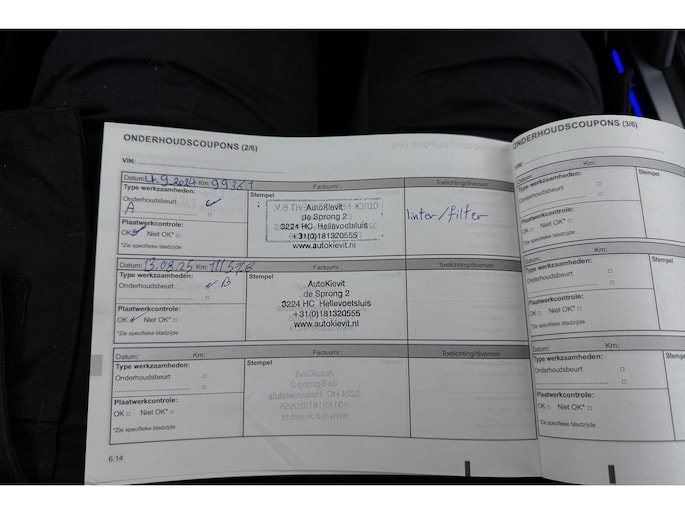 ONDERHOUDSCOUPONS (2/6)
VIN:
Datum: 4.9.2024 Km: 99367 Factuurnr.: Toelichting/diversen
Type werkzaamheden: Stempel
Onderhoudsbeurt
A
AutoKievit
de Sprong 2
3224 HC Hellevoetsluis
+31(0)181320555
www.autokievit.nl
inter/filter
Plaatwerkcontrole:
OK Niet OK*
*Zie specifieke bladzijde
Datum: 13.03.25 Km: 111578 Factuurnr.: Toelichting/diversen
Type werkzaamheden: Stempel
Onderhoudsbeurt B
AutoKievit
de Sprong 2
3224 HC Hellevoetsluis
+31(0)181320555
www.autokievit.nl
Plaatwerkcontrole:
OK Niet OK*
*Zie specifieke bladzijde
Datum: Km: Factuurnr.: Toelichting/diversen
Type werkzaamheden: Stempel
Onderhoudsbeurt
Plaatwerkcontrole:
OK Niet OK*
*Zie specifieke bladzijde
6.14
ONDERHOUDSCOUPONS (3/6)
VIN:
Datum: Km:
Type werkzaamheden:
Onderhoudsbeurt
Plaatwerkcontrole:
OK Niet OK*
*Zie specifieke bladzijde
Datum: Km:
Type werkzaamheden:
Onderhoudsbeurt
Plaatwerkcontrole:
OK Niet OK*
*Zie specifieke bladzijde
Datum: Km:
Type werkzaamheden:
Onderhoudsbeurt
Plaatwerkcontrole:
OK Niet OK*
*Zie specifieke bladzijde